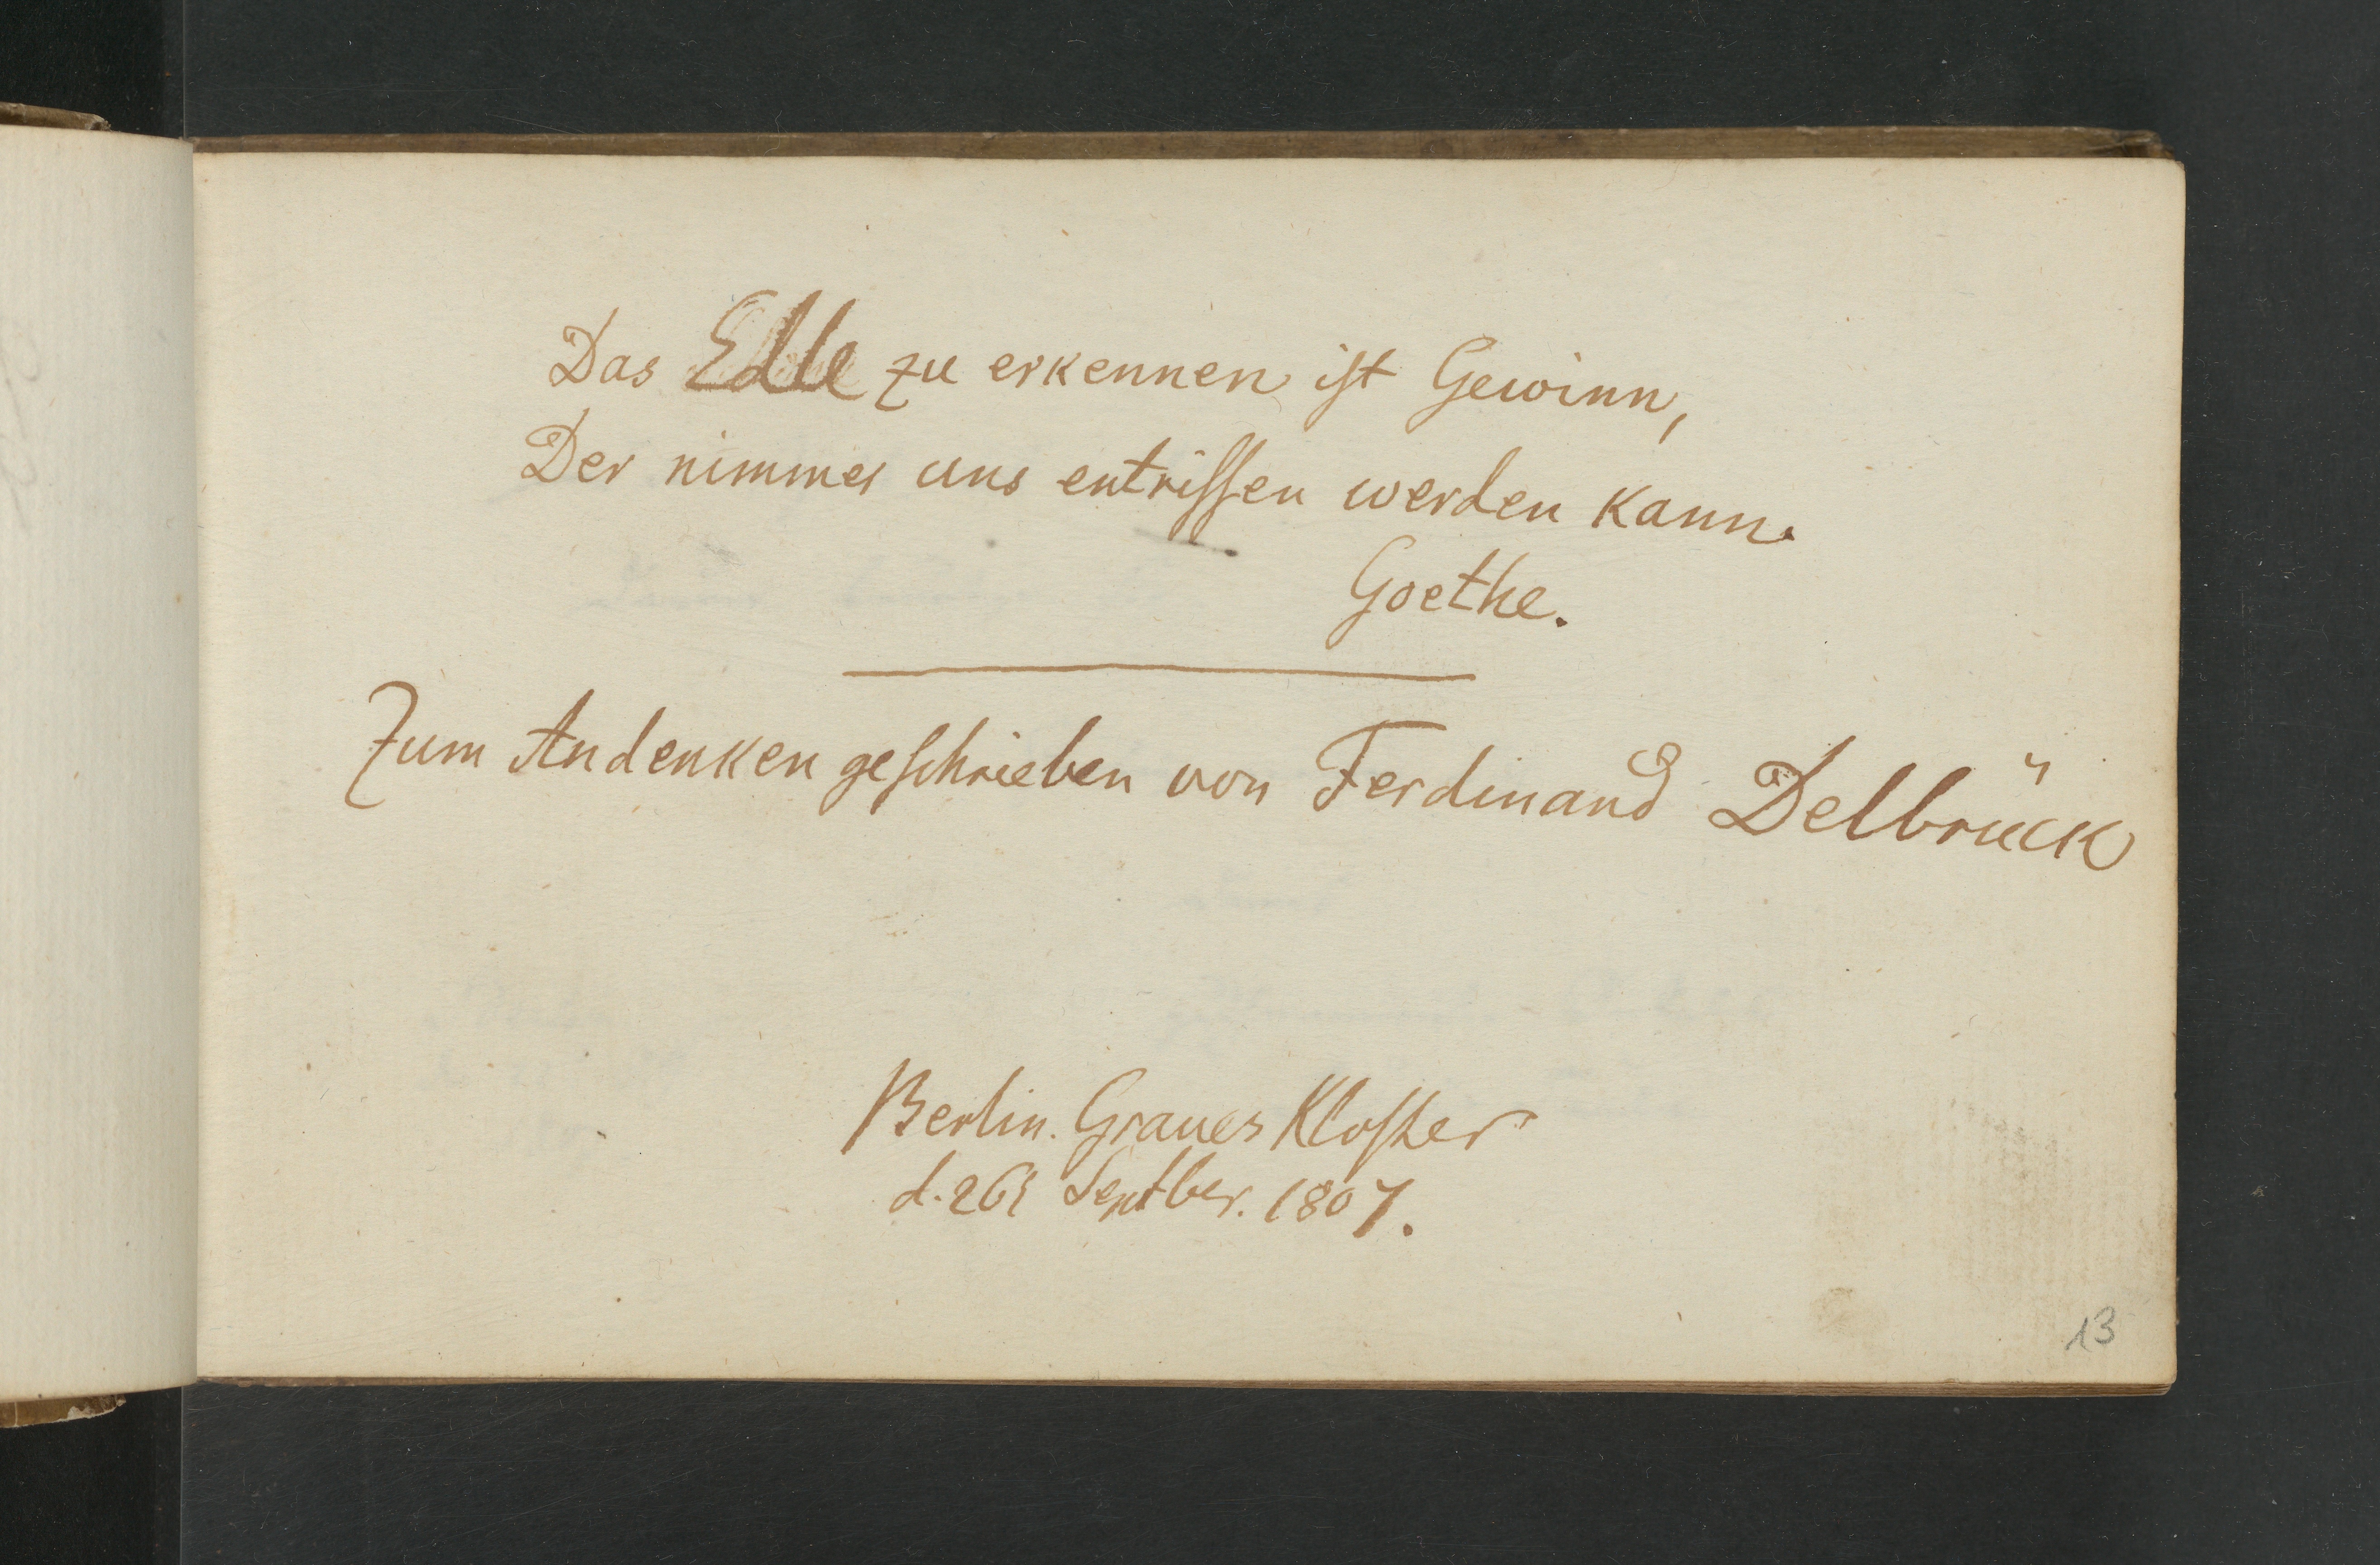 Das Edle zu erkennen ist Gewinn,
Der nimmer uns entrissen werden kann.
Goethe.
Zum Andenken geschrieben von Ferdinand Delbrück
Berlin. Graues Kloster
d. 26t Septber. 1807.
13